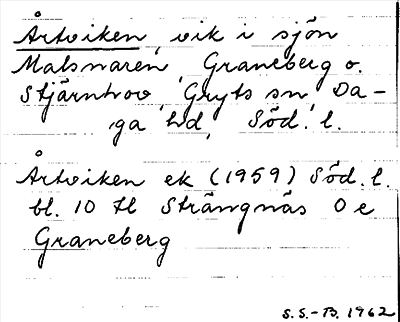 Årtviken, vik i sjön
Malsnaren, Graneberg o.
Stjärntrov, Gryts sn, Da-
ga hd, Söd. l.
Årtviken ek (1959) Söd. l.
bl. 10 tl Strängnäs O e
Graneberg
S.S.-B. 1962